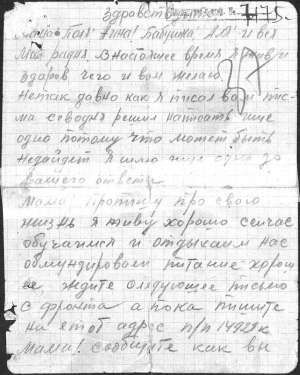 Здравствуйте
7175.
Мама! Поля! Анна! Бабушка! Аля! и вся
Моя радня. Внастоящее время я жив и
здаров чего и вам желаю
37
Нетак давно как я писал вам пис-
ма севодня решил написать ище
одно потому что может быть
недайдет я шлю ище одно до
вашего ответа.
Мама! Пропишу про свою
жизнь я живу хорошо сейчас
обучаимся и отдыхаим нас
обмундировали питание хорош
ее ждите следующее письмо
с фронта а пока пишите
на етот адрес п/п
Мама! сообщите как вы